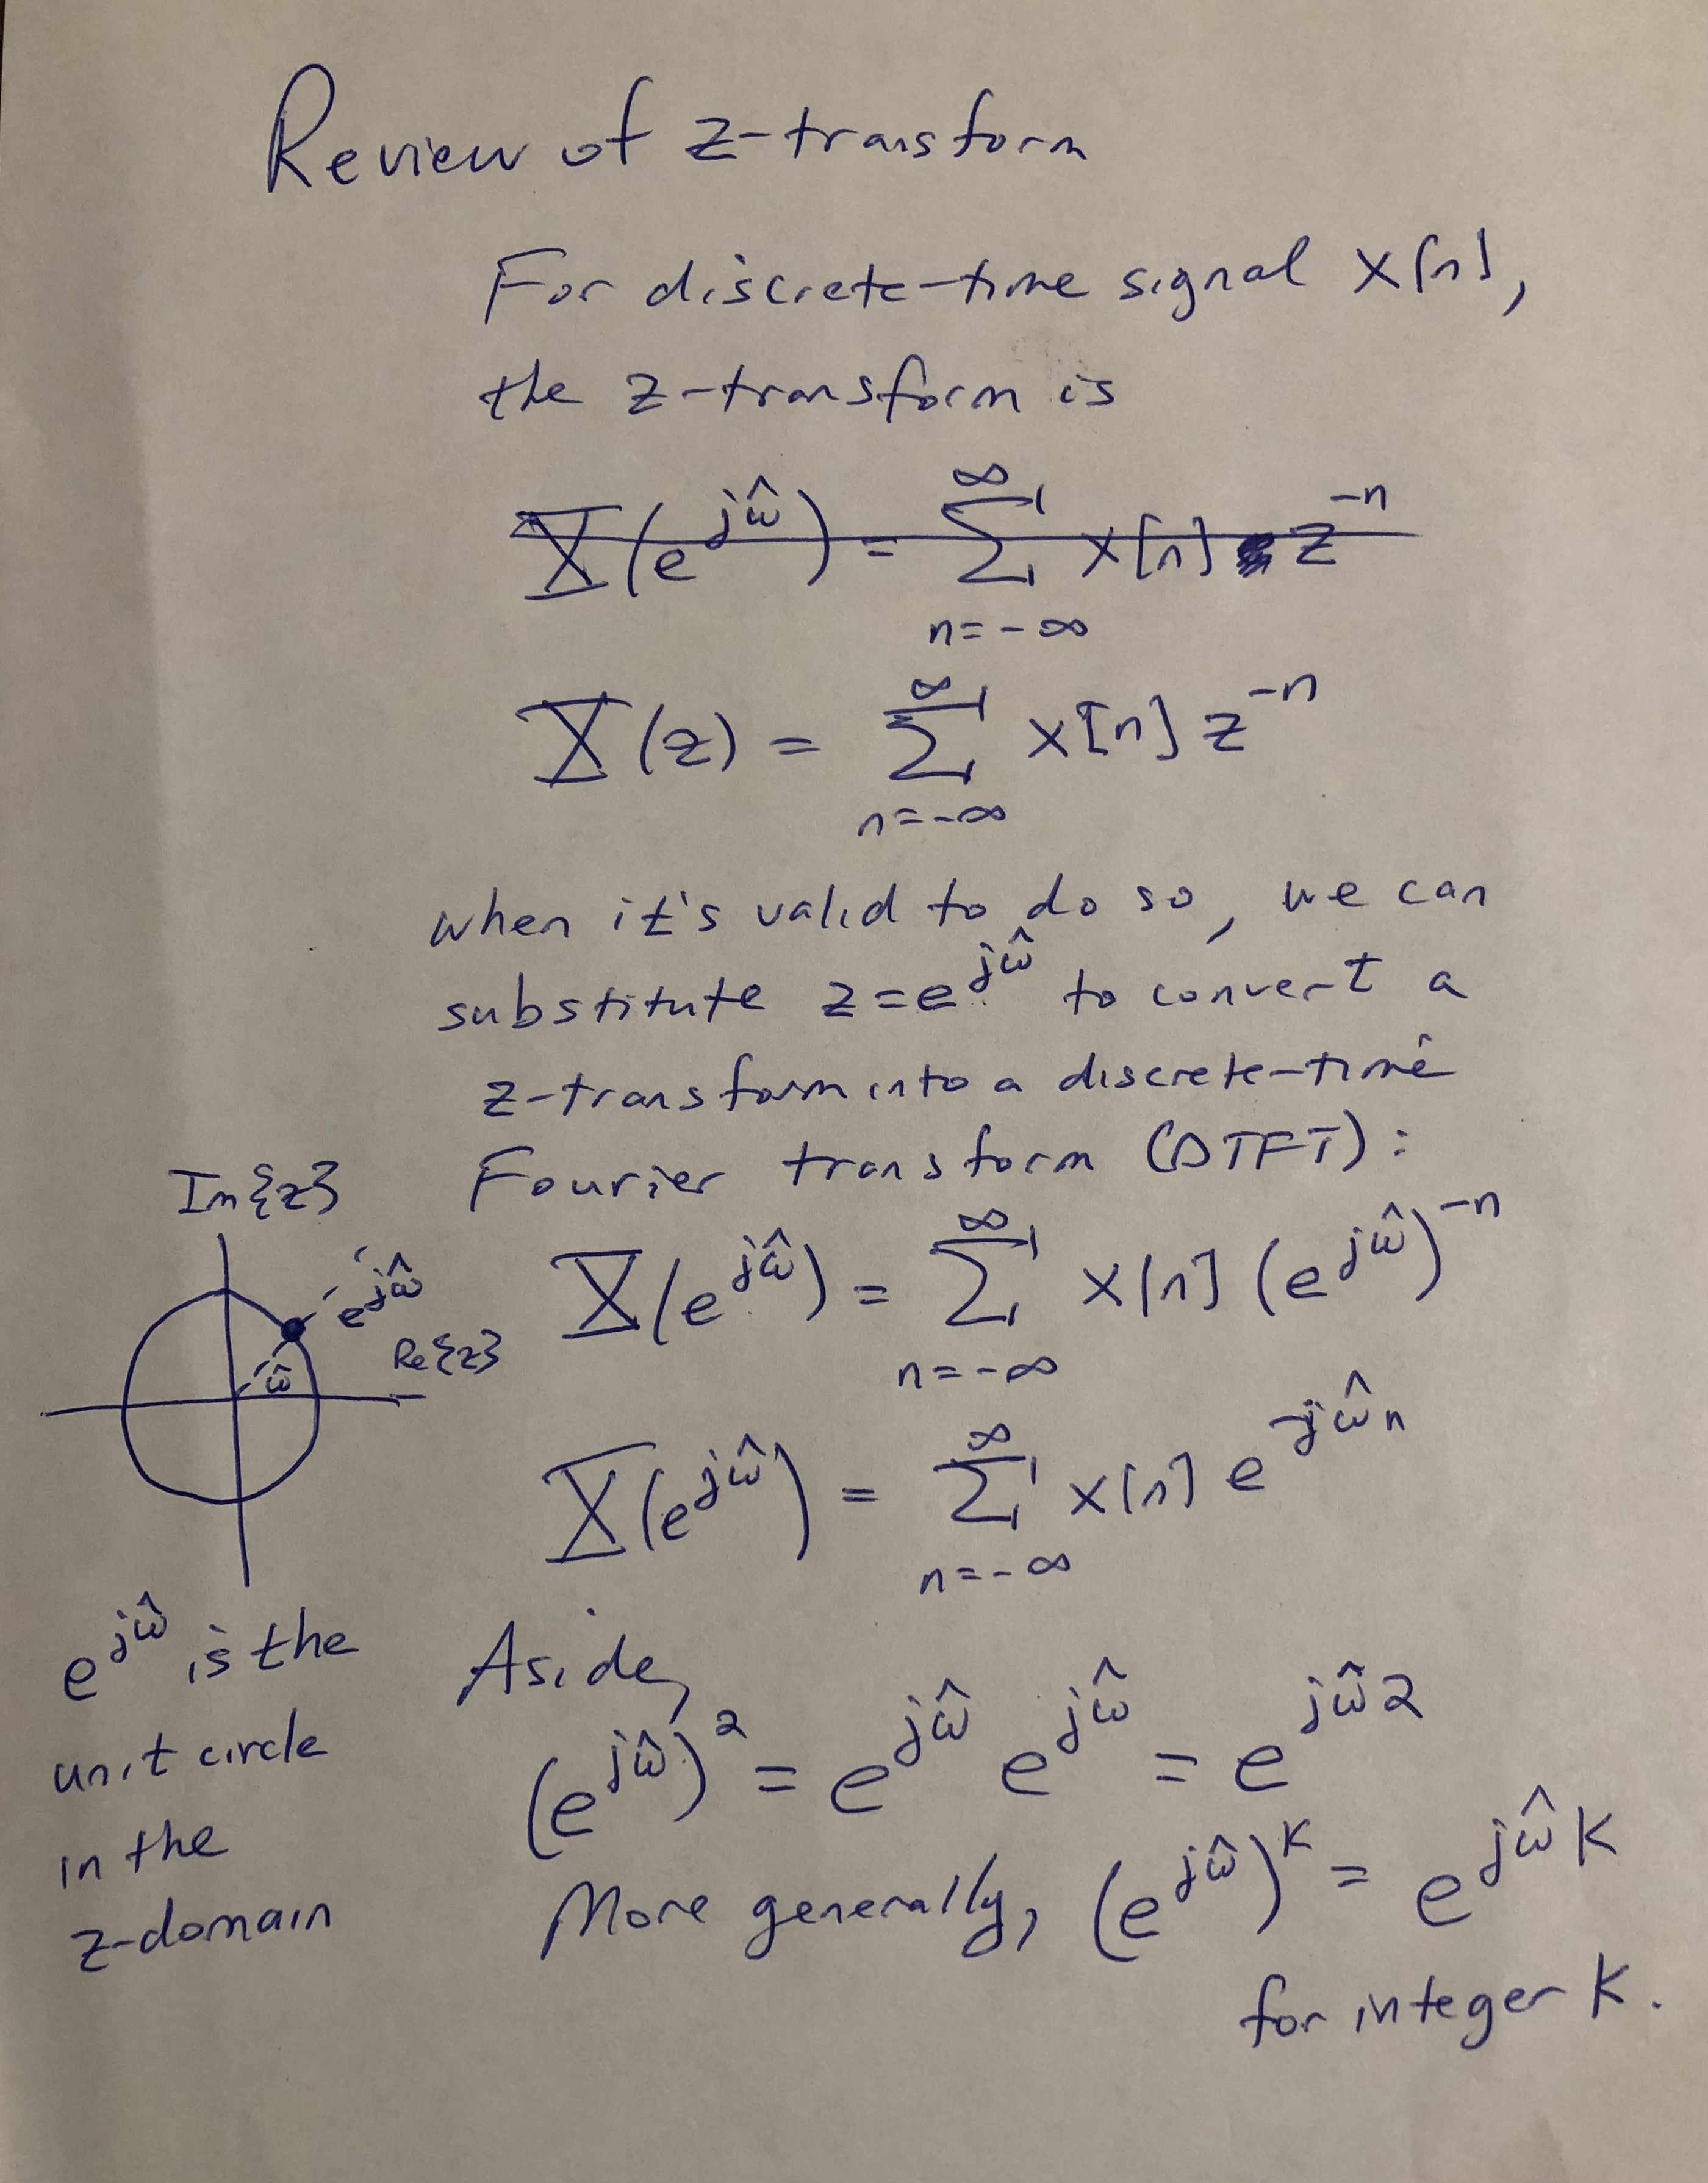 Review of z-transform
For discrete-time signal x[n],
the z-transform is
X(e^{jω̂}) = ∑_{n=-∞}^{∞} x[n] z^{-n}
X(z) = ∑_{n=-∞}^{∞} x[n] z^{-n}
when it's valid to do so, we can
substitute z=e^{jω̂} to convert a
z-transform into a discrete-time
Fourier transform (DTFT):
X(e^{jω̂}) = ∑_{n=-∞}^{∞} x[n] (e^{jω̂})^{-n}
X(e^{jω̂}) = ∑_{n=-∞}^{∞} x[n] e^{-jω̂n}
Im{z}
e^{jω̂}
Re{z}
ω̂
e^{jω̂} is the
unit circle
in the
z-domain
Aside,
(e^{jω̂})^2 = e^{jω̂} e^{jω̂} = e^{jω̂2}
More generally, (e^{jω̂})^K = e^{jω̂K}
for integer K.